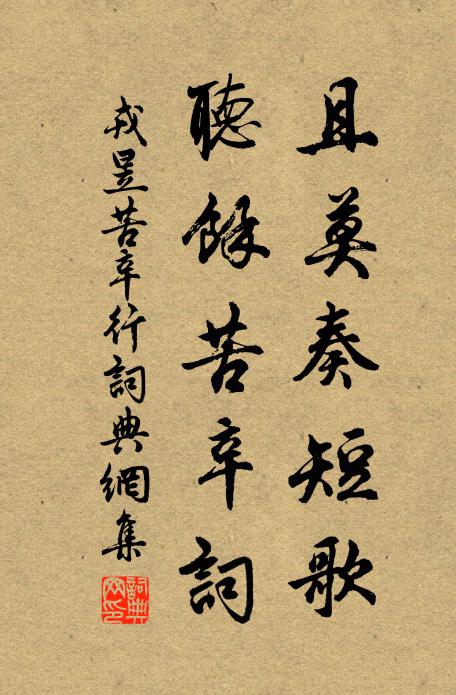 且莫奏短歌
聽餘苦辛詞
戎昱苦辛行詞典網集
詞典網印